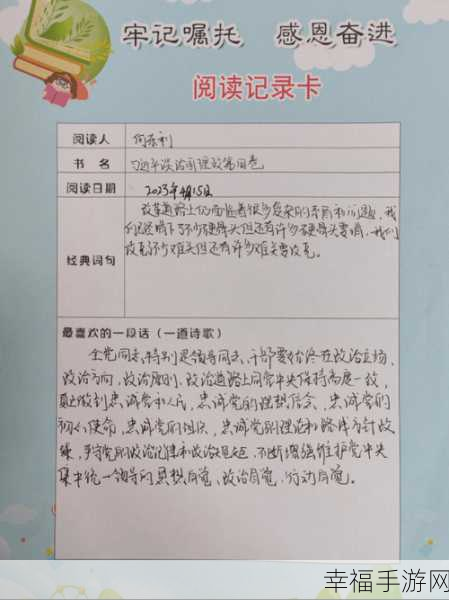 牢记嘱托 感恩奋进
阅读记录卡
阅读人 何
书名 习近平谈治国理政第四卷
阅读日期 2023年4月15日
改革道路上仍面临着很多复杂的矛盾和问题,我
们已经啃下了不少硬骨头但还有许多硬骨头要啃,我们
经典词句
攻克了不少难关但还有许多难关要攻克。
最喜欢的一段话(一道诗歌)
全党同志特别是领导同志、干部要始终在政治立场、
政治方向、政治原则、政治道路上同党中央保持高度一致,
真正做到忠诚党和人民,忠诚党的理想信念,忠诚党的
初心使命,忠诚党的组织,忠诚党的理论和路线方针政
策,严守党的政治纪律和政治规矩,不断增强维护党中央
集中统一领导的思想自觉、政治自觉、行动自觉。
幸福手游网